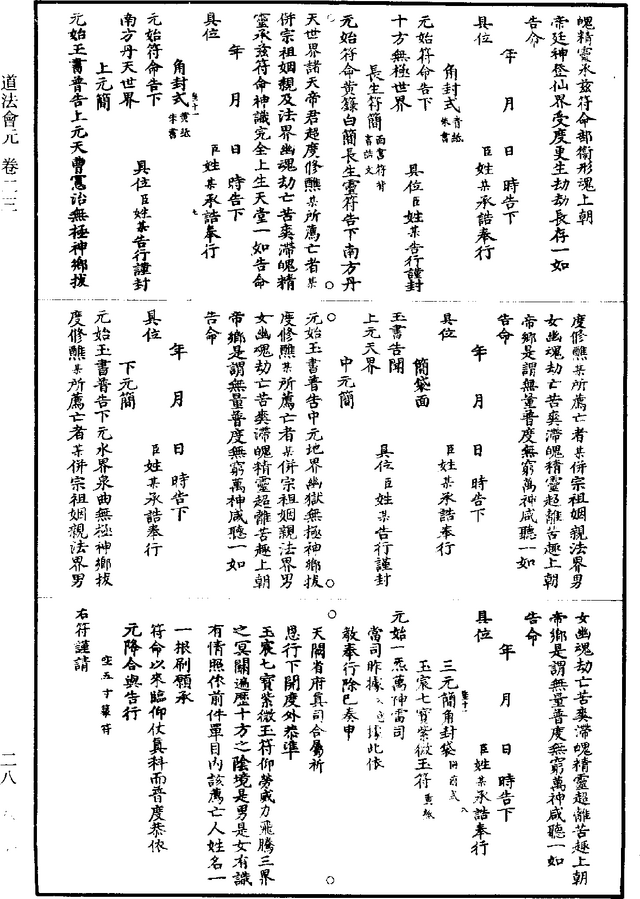 魄精靈承茲符命部衛形魂上朝
帝廷神登仙界受度更生劫劫長存一如
告命
年 月 日 時告下
具位 臣姓某承誥奉行
角封式 青紙 朱書
元始符命告下
十方無極世界
具位臣姓某告行謹封
長生符簡 面書符 背書誥文
元始符命黃籙白簡長生靈符告下南方丹
天世界諸天帝君超度修醮某所薦亡者某
併宗祖姻親及法界幽魂劫亡苦爽滯魄精
靈承茲符命神識完全上生天堂一如告命
年 月 日 時告下
具位 臣姓某承誥奉行
角封式 黃紙 朱書
元始符命告下
南方丹天世界
具位臣姓某告行謹封
上元簡
元始玉書普告上元天曹冥治無極神鄉拔
度修醮某所薦亡者某併宗祖姻親法界男
女幽魂劫亡苦爽滯魄精靈超離苦趣上朝
帝鄉是謂無量普度無窮萬神咸聽一如
告命
年 月 日 時告下
具位 臣姓某承誥奉行
簡袋面
玉書告聞
上元天界
具位臣姓某告行謹封
中元簡
元始玉書普告中元地界幽獄無極神鄉拔
度修醮某所薦亡者某併宗祖姻親法界男
女幽魂劫亡苦爽滯魄精靈超離苦趣上朝
帝鄉是謂無量普度無窮萬神咸聽一如
告命
年 月 日 時告下
具位 臣姓某承誥奉行
下元簡
元始玉書普告下元水界泉曲無極神鄉拔
度修醮某所薦亡者某併宗祖姻親法界男
女幽魂劫亡苦爽滯魄精靈超離苦趣上朝
帝鄉是謂無量普度無窮萬神咸聽一如
告命
年 月 日 時告下
具位 臣姓某承誥奉行
三元簡角封袋 同前式
玉宸七寶紫微玉符 黃紙
元始一炁萬神雷司
當司昨據 據此依
教奉行除已奏申
天闕省府眞司合屬祈
恩行下開度外恭準
玉宸七寶紫微玉符仰勞威力飛騰三界
之冥關遍歷十方之陰境是男是女有識
有情照依前件單目內該薦亡人姓名一
一根刷願承
符命以來臨仰仗眞科而普度恭依
元降合與告行
空五寸篆符
右符謹請
道法會元 卷二三
二八